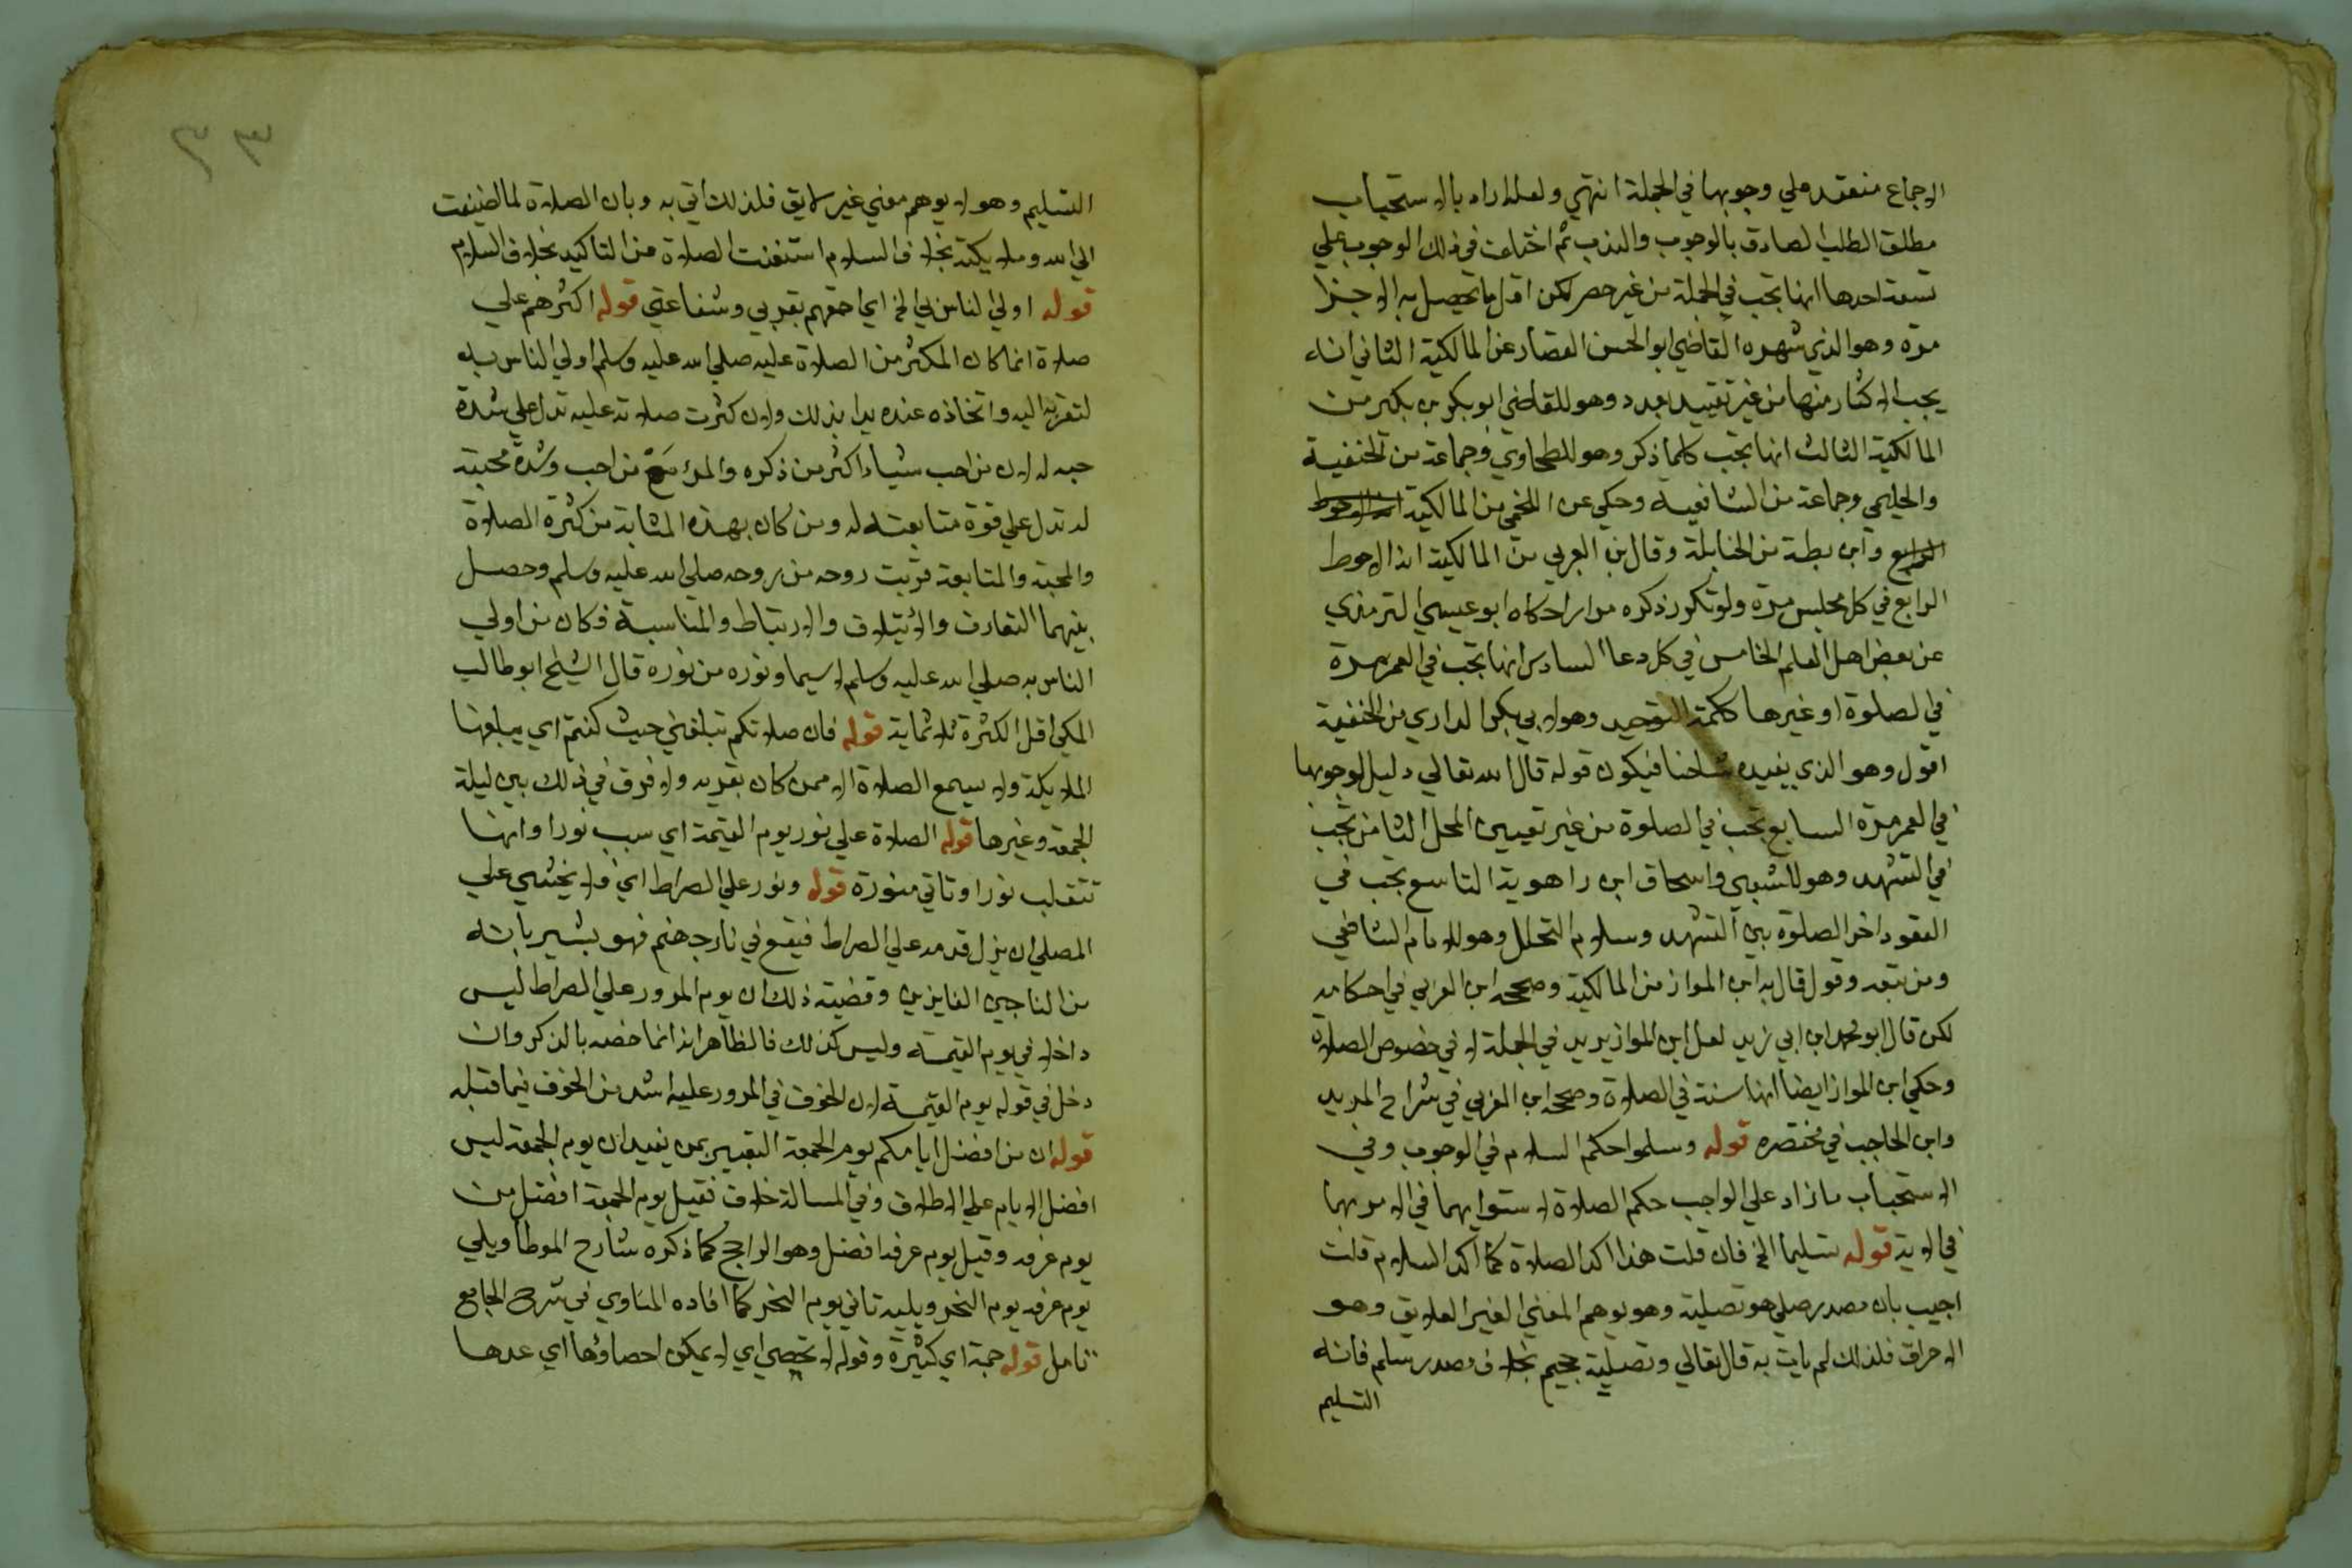 الاجماع منعقد علي وجوبها في الجملة انتهي ولعله اراد بالاستحباب
مطلق الطلب الصادق بالوجوب والندب ثم اختلفت في ذلك الوجوب علي
تسعة احدها انها تجب في الجملة من غير حصر لكن اقل ما يحصل به الاجزا
مرة وهو الذي شهره القاضي ابو الحسن القصار عن المالكية الثاني انه
يجب الاكثار منها من غير تقييد بعدد وهو للقاضي ابو بكر بن بكير من
المالكية الثالث انها تجب كلما ذكر وهو للطحاوي وجماعة من الحنفية
والحليمي وجماعة من الشافعية وحكي عن اللخمي من المالكية
وابن بطة من الحنابلة وقال بن العربي من المالكية انه الاحوط
الرابع في كل مجلس مرة ولو تكرر ذكره مرارا حكاه ابو عيسي الترمذي
عن بعض اهل العلم الخامس في كل دعا السادس انها تجب في العمر مرة
في الصلوة او غيرها ككلمة التوحيد وهو لابي بكر الداري من الحنفية
اقول وهو الذي يفيده شيخنا فيكون قوله قال الله تعالي دليل لوجوبها
في العمر مرة السابع تجب في الصلوة من غير تعيين المحل الثامن تجب
في التشهد وهو للشعبي واسحاق ابن راهوية التاسع تجب في
القعود اخر الصلوة بين التشهد وسلام التحلل وهو للامام الشافعي
ومن تبعه وقول قال به ابن المواز من المالكية وصححه ابن العربي في احكامه
لكن قال ابو محمد ابن ابي زيد لعل ابن المواز يريد في الجملة لا في خصوص الصلاة
وحكي ابن المواز ايضا انها سنة في الصلاة وصححه ابن العربي في شراح المريدين
وابن الحاجب في مختصره قوله وسلموا حكم السلام في الوجوب وفي
الاستحباب ما زاد علي الواجب حكم الصلاة لاستوايهما في الامر بهما
في الاية قوله تسليما الخ فان قلت هذا اكد الصلاة كما اكد السلام قلت
اجيب بان مصدر صلي هو تصلية وهو يوهم المعني الغير اللايق وهو
الاحراق فلذلك لم يات به قال تعالي وتصلية جحيم بخلاف مصدر سلم فانه
التسليم
٣٣
التسليم وهو لا يوهم معني غير لايق فلذلك اتي به وبان الصلاة لما اضيفت
الي الله وملايكته بخلاف السلام استغنت الصلاة عن التاكيد بخلاف السلام
قوله اولي الناس بي الخ اي احقهم بقربي وشفاعتي قوله اكثرهم علي
صلاة انما كان المكثر من الصلاة عليه صلي الله عليه وسلم اولي الناس به
لتقربه اليه واتخاذه عنده يدا بذلك ولان كثرت صلاته عليه تدل علي شدة
حبه له لان من احب شيئا اكثر من ذكره والمرء مع من احب وشدة محبته
له تدل علي قوة متابعته له ومن كان بهذه المثابة من كثرة الصلاة
والمحبة والمتابعة قربت روحه من روحه صلي الله عليه وسلم وحصل
بينهما التعارف والائتلاف والارتباط والمناسبة فكان من اولي
الناس به صلي الله عليه وسلم لا سيما ونوره من نوره قال الشيخ ابو طالب
المكي اقل الكثرة ثلاثماية قوله فان صلاتكم تبلغني حيث كنتم اي يبلغها
الملايكة ولا يسمع الصلاة الا ممن كان بقربه ولا فرق في ذلك بين ليلة
الجمعة وغيرها قوله الصلاة علي نور يوم القيمة اي سبب نورا وانها
تتقلب نورا وتاتي منورة قوله ونور علي الصراط اي فلا يخشي علي
المصلي ان يزل قدمه علي الصراط فيقع في نار جهنم فهو بشير بانه
من الناجين الفايزين وقضيته ذلك ان يوم المرور علي الصراط ليس
داخلا في يوم القيمة وليس كذلك فالظاهر انه انما خصه بالذكر وان
دخل في قوله يوم القيمة لان الخوف في المرور عليه اشد من الخوف فيما قبله
قوله ان من افضل ايامكم يوم الجمعة التعبير بمن يفيد ان يوم الجمعة ليس
افضل الايام علي الاطلاق وفي المسالة خلاف فقيل يوم الجمعة افضل من
يوم عرفه وقيل يوم عرفه افضل وهو الراجح كما ذكره شارح الموطا ويلي
يوم عرفه يوم النحر ويليه ثاني يوم النحر كما افاده المناوي في شرح الجامع
تامل قوله جمة اي كثيرة وقوله لا تحصي اي لا يمكن احصاؤها اي عدها